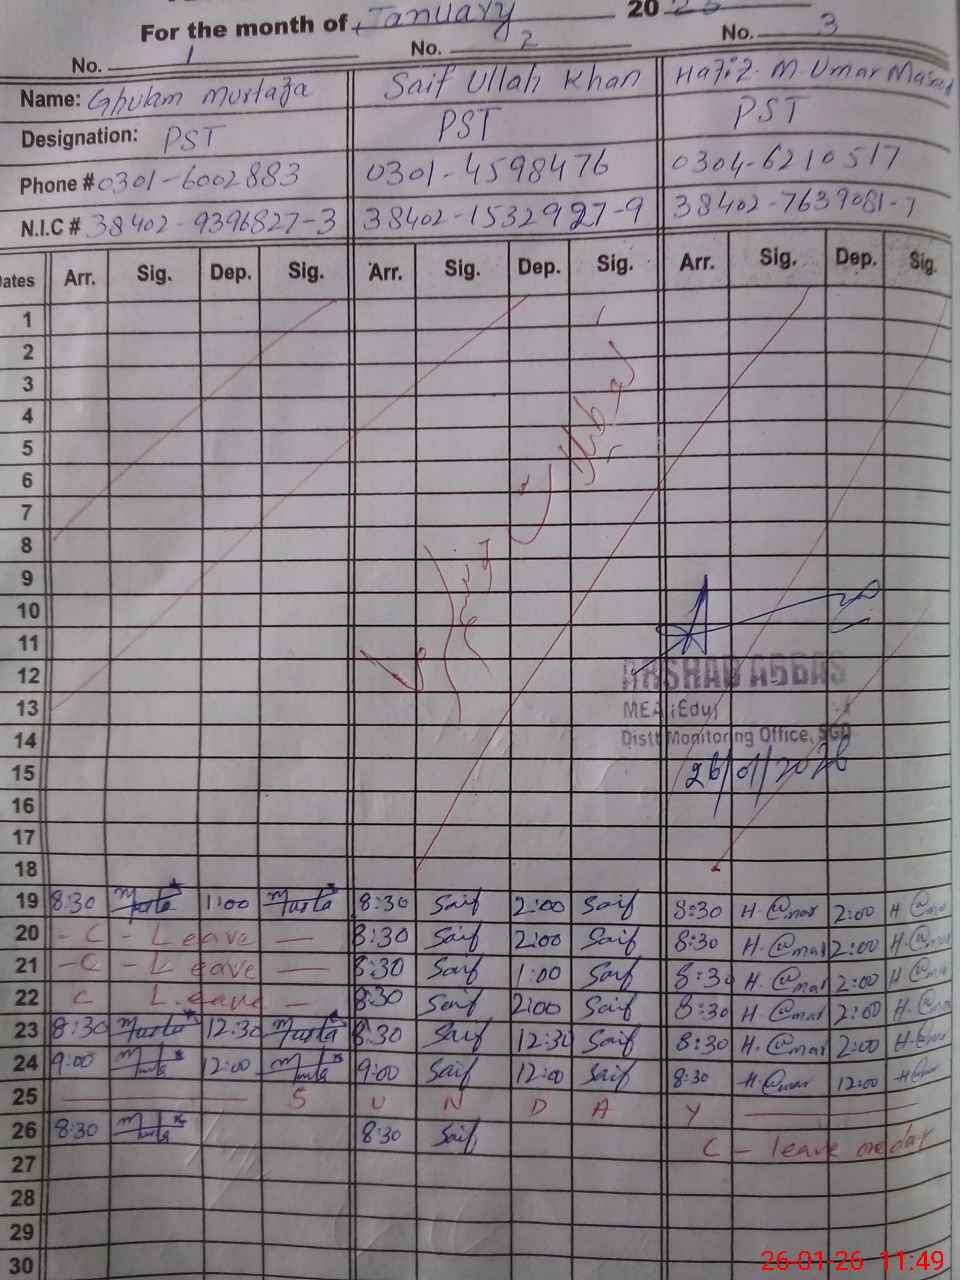 For the month of January 20
No. 1 No. 2 No. 3
Name: Ghulam Murtaza Saif Ullah Khan Hafiz M Umar
Designation: PST PST PST
Phone # 0301-6002883 0301-4598476 0304-6210517
N.I.C # 38402-9396827-3 38402-1532927-9 38402-7639081-7
Dates Arr. Sig. Dep. Sig. Arr. Sig. Dep. Sig. Arr. Sig. Dep. Sig.
1
2
3
4
5
6
7
8
9
10
11
12
ARSHAD ABBAS
13
MEA (Edu)
14
Distt Monitoring Office, SGD
15
26/01/2026
16
17
18
19 8:30 Murta 1:00 Murta 8:30 Saif 2:00 Saif 8:30 H. Omar 2:00 H. Omar
20 - C - Leave — 8:30 Saif 2:00 Saif 8:30 H. Omar 2:00 H. Omar
21 - C - Leave — 8:30 Saif 1:00 Saif 8:30 H. Omar 2:00 H. Omar
22 C Leave - 8:30 Saif 2:00 Saif 8:30 H. Omar 2:00 H. Omar
23 8:30 Murta 12:30 Murta 8:30 Saif 12:30 Saif 8:30 H. Omar 2:00 H. Omar
24 9:00 Murta 12:00 Murta 9:00 Saif 12:00 Saif 8:30 H. Omar 12:00 H. Omar
25 S U N D A Y
26 8:30 Murta 8:30 Saif C - leave one day
27
28
29
30
26-01-26 11:49